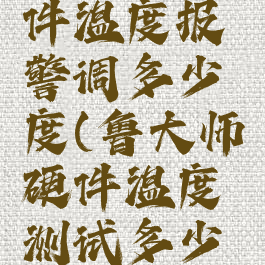 件温度报
警调多少
度(鲁大师
硬件温度
测试多少